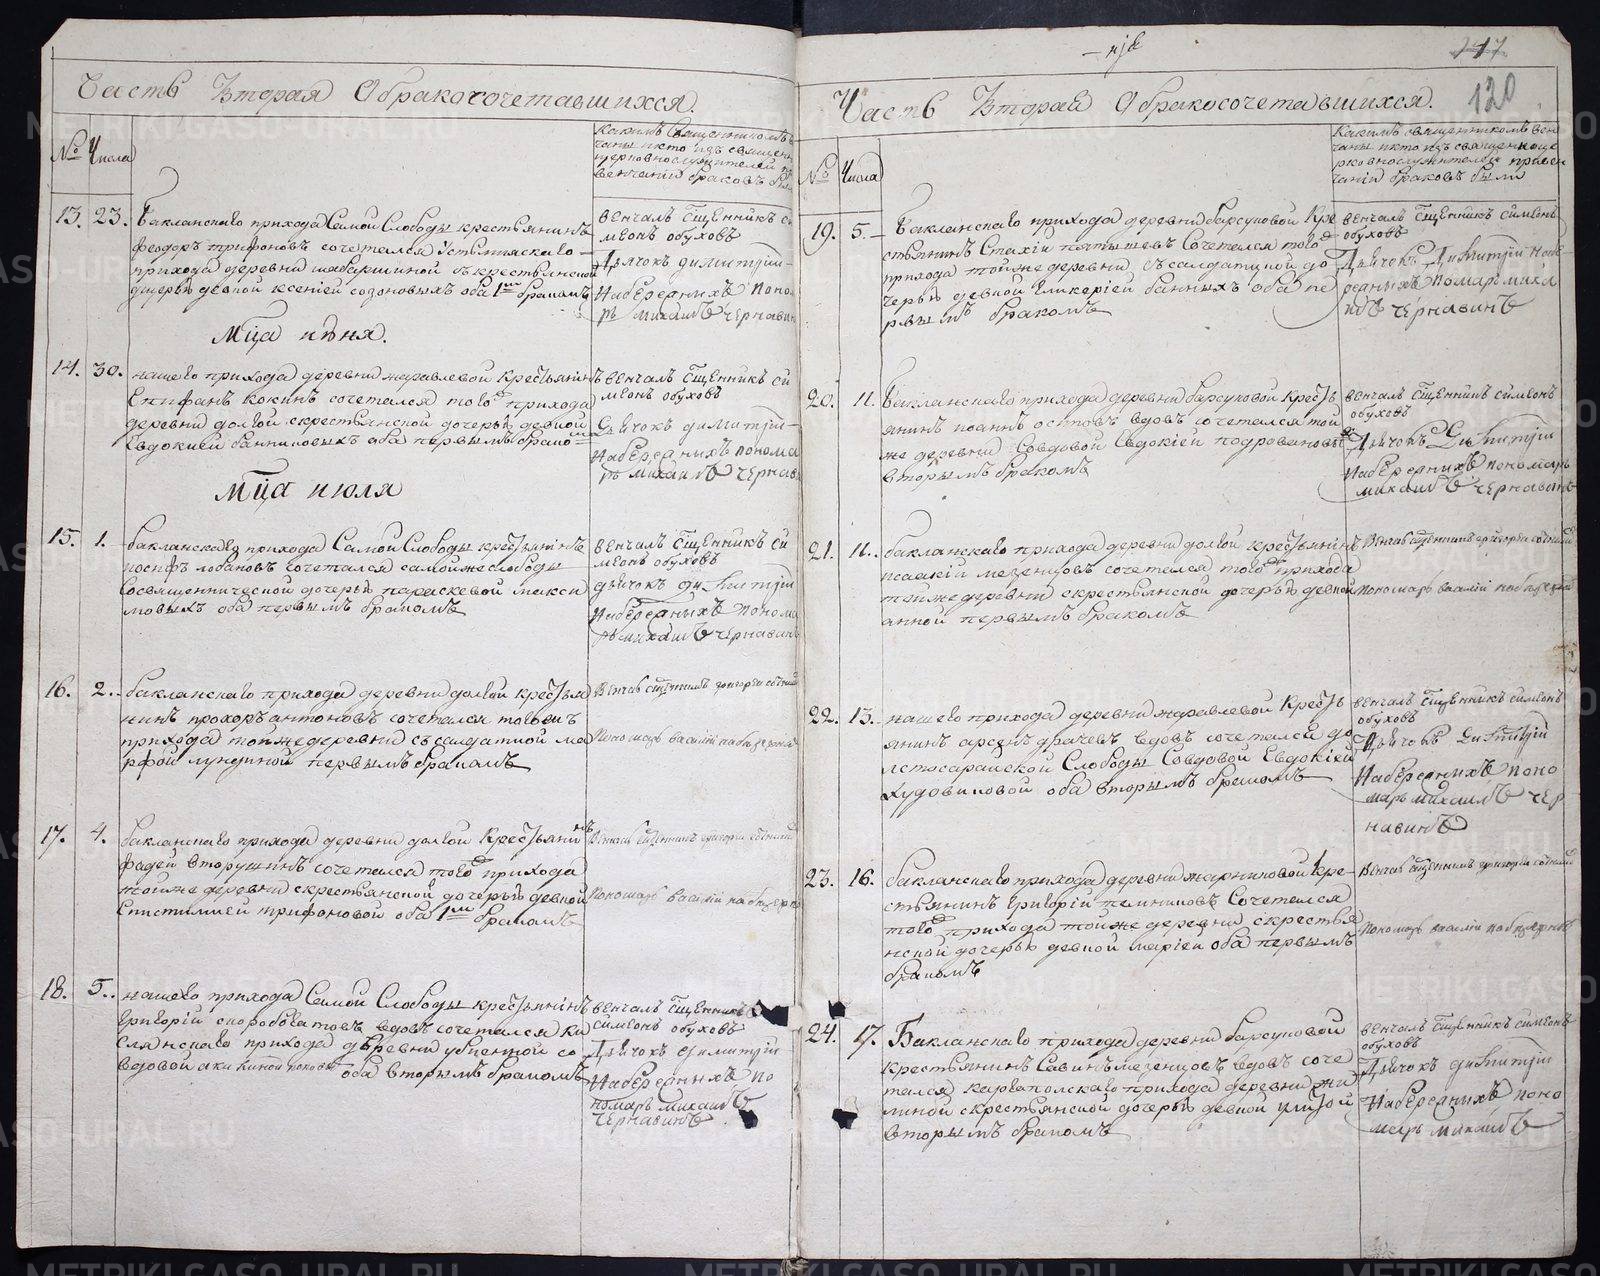 Часть Вторая О бракосочетавшихся.
№ Числа
Какимъ Священникомъ
венчаніи браковъ были
13. 23. Бакланскаго прихода Самой Слободы крестьянинъ
феодоръ трифоновъ сочетался
прихода деревни шабаршиной съ крестьянской
дщерью девкой ксеніей созоновыхъ оба 1мъ бракомъ
венчалъ Сщенникъ си
меонъ обуховъ
Дьячокъ димитріи
Набережныхъ поно
рь михаилъ чернавин
Мца июня.
14. 30. нашего прихода деревни журавлевой крестьянинъ
Епифанъ кокинъ сочетался того прихода
деревни долгой скрестьянской дочерью девкой
Евдокией банниковыхъ оба первымъ брако
венчалъ Сщенникъ си
меонъ обуховъ
Дьячокъ димитріи
Набережныхъ понома
рь михаилъ чернав
Мца июля
15. 1. бакланскаго прихода Самой Слободы крестьянинъ
иосифъ лобановъ сочетался самой же слободы
Сосвященнической дочерью параскевой макси
мовыхъ оба первымъ бракомъ
венчалъ Сщенникъ си
меонъ обуховъ
дьячокъ димитріи
Набережныхъ понома
рь михаилъ чернавинъ
16. 2. бакланскаго прихода деревни долгой крестья
нинъ прохоръ антоновъ сочетался тогожъ
прихода тойже деревни съ салдаткой ма
рфой лундиной первымъ бракомъ
Венчалъ сщенникъ григорій
Пономарь василій
17. 4. бакланскаго прихода деревни долгой Крестьянинъ
фадей вторушинъ сочетался того прихода
тойже деревни скрестьянской дочерью девкой
Епистимией трифоновой оба 1мъ бракомъ
Венчалъ сщенникъ григорій
Пономарь василій
18. 5. нашего прихода Самой Слободы крестьянинъ
Григорій скоробогатовъ вдовъ сочетался ки
слянскаго прихода деревни убиенной со
вдовой оба вторымъ бракомъ
венчалъ Сщенникъ
симеонъ обуховъ
Дьячокъ димитріи
Набережныхъ по
номарь михаилъ
Чернавинъ
117
120
Часть Вторая О бракосочетавшихся.
№ Числа
Какимъ священникомъ вен
чаны икто изъ священноце
рковнослужителей привен
чаніи браковъ были
19. 5. Бакланскаго прихода деревни барсуковой Кре
стьянинъ Стахій сочетался того
прихода тойже деревни съ салдатцкой до
черью девкой гликеріей банныхъ оба пе
рвымъ бракомъ
венчалъ Сщенникъ симеонъ
обуховъ
Дьячокъ Димитрій Наб
режныхъ помарь миха
илъ чернавинъ
20. 11. Бакланскаго прихода деревни барсуковой Кресть
янинъ иоаннъ осиповъ вдовъ сочетался той
же деревни совдовой Евдокіей
вторымъ бракомъ
венчалъ Сщенникъ симеонъ
обуховъ
Дьячокъ Димитріи
Набережныхъ пономарь
михаилъ чернавинъ
21. 11. бакланскаго прихода деревни долгой крестьянинъ
исаакій мезенцовъ сочетался того прихода
тойже деревни скрестьянской дочерью девкой
анной первымъ бракомъ
Венчалъ сщенникъ григорій
Пономарь василій
22. 13. нашего прихода деревни журавлевой Кресть
янинъ арсенъ драчевъ вдовъ сочетался до
лстосарайской Слободы совдовой Евдокией
Худовиковой оба вторымъ бракомъ
венчалъ Сщенникъ симеонъ
обуховъ
Дьячокъ Димитрій
Набережныхъ поно
марь михаилъ чер
навинъ
23. 16. бакланскаго прихода деревни жарниковой кре
стьянинъ григорій темниковъ сочетался
того прихода тойже деревни скрестья
нской дочерью девкой маріей оба первымъ
бракомъ
Венчалъ сщенникъ григорій
Пономарь василій
24. 17. Бакланскаго прихода деревни барсуковой
крестьянинъ Савинъ мезенцовъ вдовъ соче
тался каргапольскаго прихода деревни жи
линой скрестьянской дочерью девкой улитой
вторымъ бракомъ
венчалъ Сщенникъ симеонъ
обуховъ
Дьячокъ димитріи
Набережныхъ поно
марь михаилъ